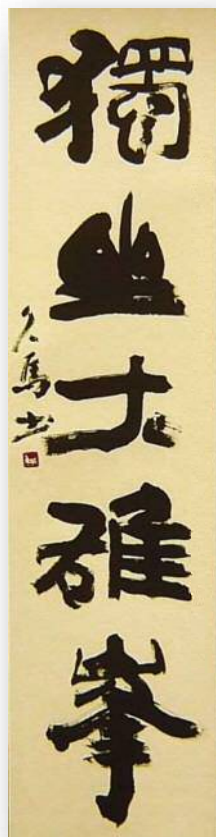 獨坐大雄峯
久馬書